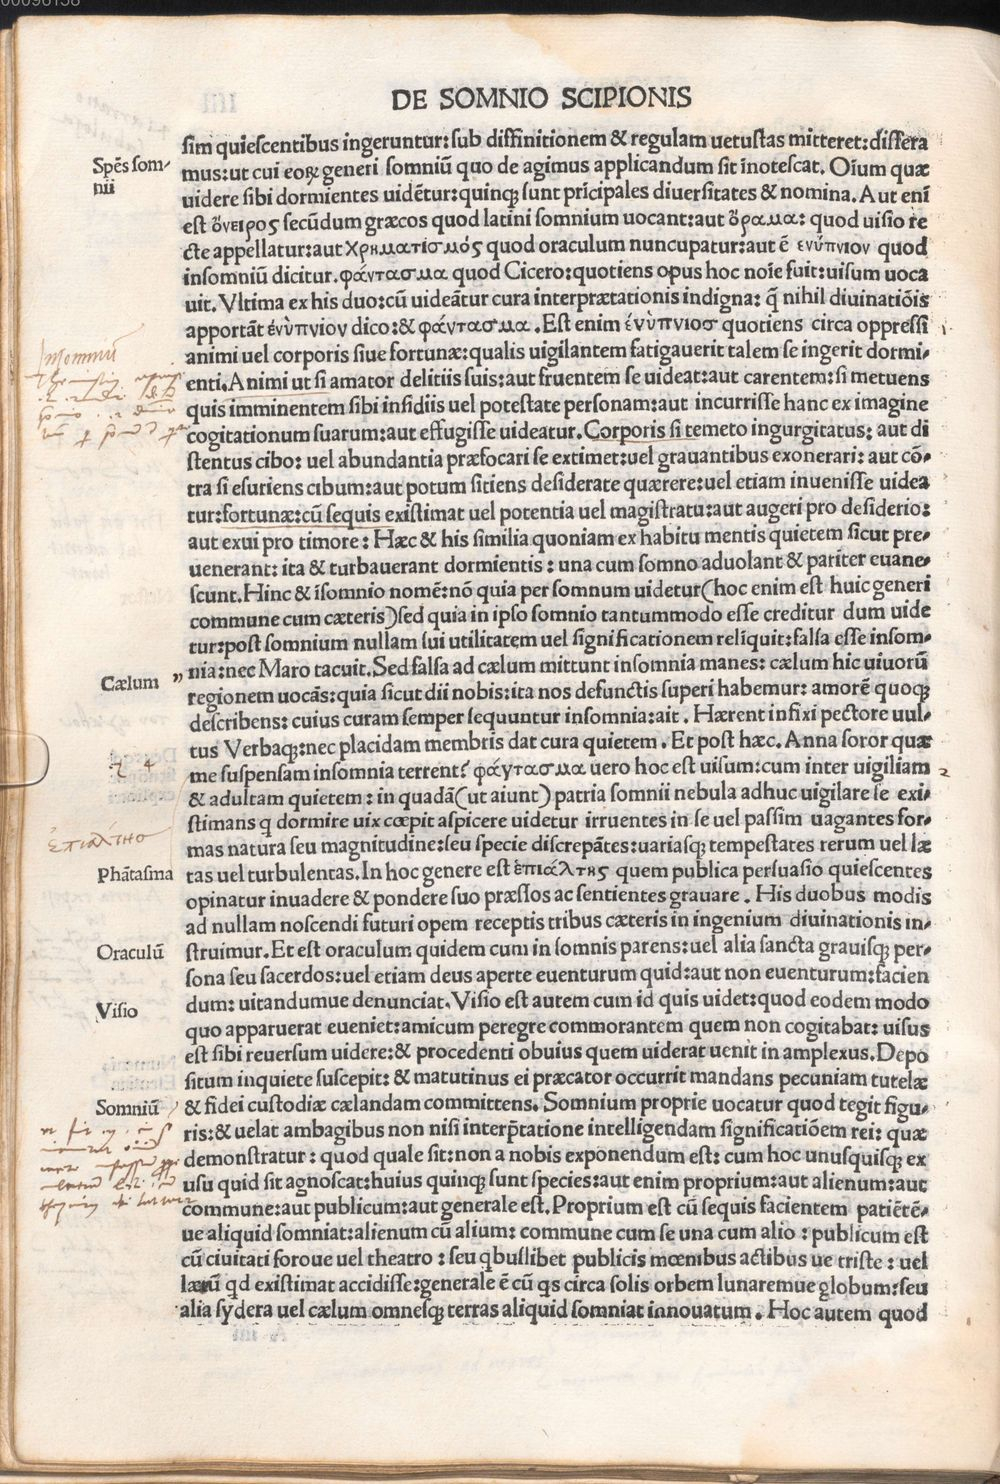 00096158
DE SOMNIO SCIPIONIS
sim quiescentibus ingeruntur:sub diffinitionem & regulam uetustas mitteret:differa
Spẽs som-
nii
mus:ut cui eoꝝ generi somniũ quo de agimus applicandum sit ĩnotescat. Oĩum quæ
uidere sibi dormientes uidẽtur:quinqꝫ sunt prĩcipales diuersitates & nomina. Aut enĩ
est ὄνειρος secũdum græcos quod latini somnium uocant:aut ὅραμα: quod uisio re
cte appellatur:aut χρηματίσμός quod oraculum nuncupatur:aut ẽ ενύπνιον quod
insomniũ dicitur. φάντασμα quod Cicero:quotiens opus hoc noĩe fuit:uisum uoca
uit. Vltima ex his duo:cũ uideãtur cura interprætationis indigna: q̃ nihil diuinatiõis
apportãt ἐνὺπνιον dico:& φάντασμα. Est enim ἐνὺπνιοσ quotiens circa oppressi
animi uel corporis siue fortunæ:qualis uigilantem fatigauerit talem se ingerit dormi-
Insomniũ
enti. Animi ut si amator delitiis suis:aut fruentem se uideat:aut carentem:si metuens
quis imminentem sibi insidiis uel potestate personam:aut incurrisse hanc ex imagine
cogitationum suarum:aut effugisse uideatur. Corporis si temeto ingurgitatus: aut di
stentus cibo: uel abundantia præfocari se extimet:uel grauantibus exonerari: aut cõ-
tra si esuriens cibum:aut potum sitiens desiderate quærere:uel etiam inuenisse uidea
tur:fortunæ:cũ sequis existimat uel potentia uel magistratu:aut augeri pro desiderio:
aut exui pro timore: Hæc & his similia quoniam ex habitu mentis quietem sicut pre-
uenerant: ita & turbauerant dormientis: una cum somno aduolant & pariter euane-
scunt. Hinc & ĩsomnio nomẽ:nõ quia per somnum uidetur(hoc enim est huic generi
commune cum cæteris)sed quia in ipso somnio tantummodo esse creditur dum uide
tur:post somnium nullam sui utilitatem uel significationem relĩquit:falsa esse insom-
nia:nec Maro tacuit. Sed falsa ad cælum mittunt insomnia manes: cælum hic uiuorũ
Cælum ”
regionem uocãs:quia sicut dii nobis:ita nos defunctis superi habemur: amorẽ quoqꝫ
describens: cuius curam semper sequuntur insomnia:ait. Hærent infixi pectore uul-
tus Verbaqꝫ:nec placidam membris dat cura quietem. Et post hæc. Anna soror quæ
me suspensam insomnia terrent? φάγτασμα uero hoc est uisum:cum inter uigiliam
& adultam quietem: in quadã(ut aiunt)patria somnii nebula adhuc uigilare se exi-
stimans q dormire uix cœpit aspicere uidetur irruentes in se uel passim uagantes for-
επιαλτησ
mas natura seu magnitudine:seu specie discrepãtes:uariasqꝫ tempestates rerum uel læ
Phãtasma
tas uel turbulentas. In hoc genere est ἐπιάλτης quem publica persuasio quiescentes
opinatur inuadere & pondere suo præssos ac sentientes grauare. His duobus modis
ad nullam noscendi futuri opem receptis tribus cæteris in ingenium diuinationis in-
Oraculũ
struimur. Et est oraculum quidem cum in somnis parens:uel alia sancta grauisqꝫ per-
sona seu sacerdos:uel etiam deus aperte euenturum quid:aut non euenturum:facien
Visio
dum: uitandumue denunciat. Visio est autem cum id quis uidet:quod eodem modo
quo apparuerat eueniet:amicum peregre commorantem quem non cogitabat: uisus
est sibi reuersum uidere:& procedenti obuius quem uiderat uenit in amplexus. Depo
situm inquiete suscepit: & matutinus ei præcator occurrit mandans pecuniam tutelæ
Somniũ
& fidei custodiæ cælandam committens. Somnium proprie uocatur quod tegit figu-
ris:& uelat ambagibus non nisi interp̃tatione intelligendam significatiõem rei: quæ
demonstratur: quod quale sit:non a nobis exponendum est: cum hoc unusquisqꝫ ex
usu quid sit agnoscat:huius quinqꝫ sunt species:aut enim proprium:aut alienum:aut
commune:aut publicum:aut generale est. Proprium est cũ sequis facientem patiẽtẽ-
ue aliquid somniat:alienum cũ alium: commune cum se una cum alio: publicum est
cũ ciuitati foroue uel theatro: seu qbuslibet publicis mœnibus actibus ue triste: uel
lætũ qd existimat accidisse:generale ẽ cũ qs circa solis orbem lunaremue globum:seu
alia sydera uel cælum omnesqꝫ terras aliquid somniat innouatum. Hoc autem quod